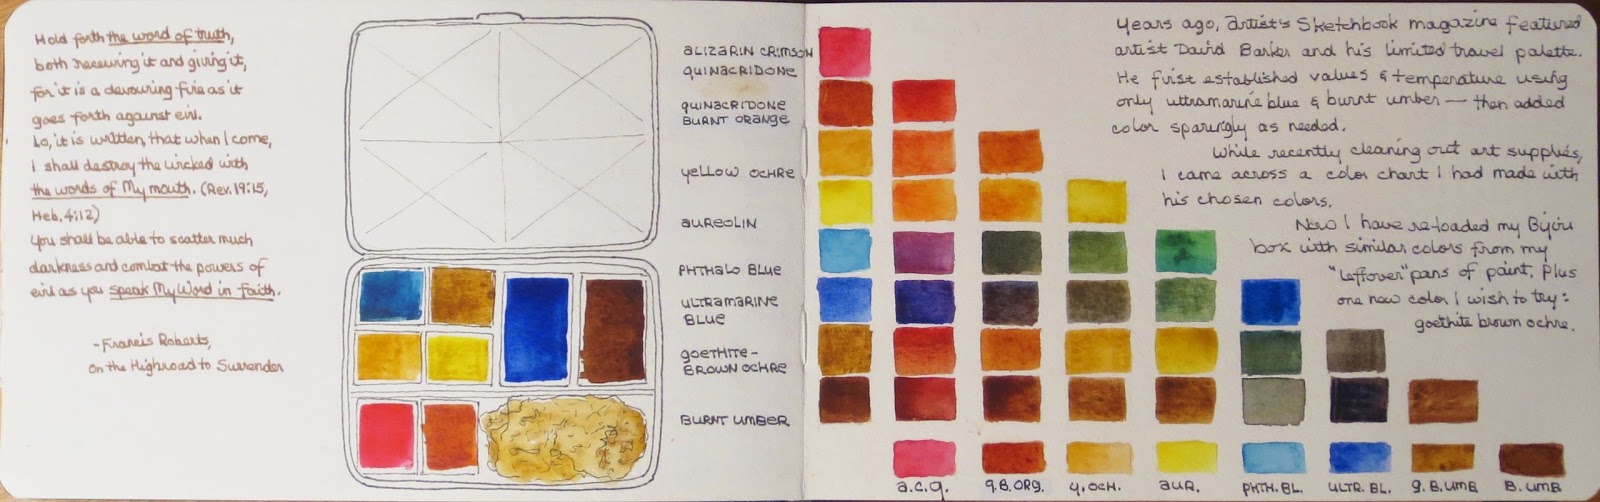 Hold forth the word of truth,
both receiving it and giving it,
for it is a devouring fire as it
goes forth against evil.
Lo, it is written, that when I come,
I shall destroy the wicked with
the words of My mouth. (Rev. 19:15,
Heb. 4:12)
You shall be able to scatter much
darkness and combat the powers of
evil as you speak My Word in faith.
- Francis Roberts,
On the Highroad to Surrender
ALIZARIN CRIMSON
QUINACRIDONE
QUINACRIDONE
BURNT ORANGE
YELLOW OCHRE
AUREOLIN
PHTHALO BLUE
ULTRAMARINE
BLUE
GOETHITE-
BROWN OCHRE
BURNT UMBER
a.c.q.
q.B.ORG.
y.OCH.
aUR.
PHTH.BL.
ULTR.BL.
g.B.UMB
B.UMB
Years ago, Artist's Sketchbook magazine featured
artist David Barker and his limited travel palette.
He first established values & temperature using
only ultramarine blue & burnt umber — then added
color sparingly as needed.
While recently cleaning out art supplies,
I came across a color chart I had made with
his chosen colors.
Now I have re-loaded my Bijou
box with similar colors from my
"leftover" pans of paint, plus
one new color I wish to try:
goethite brown ochre.